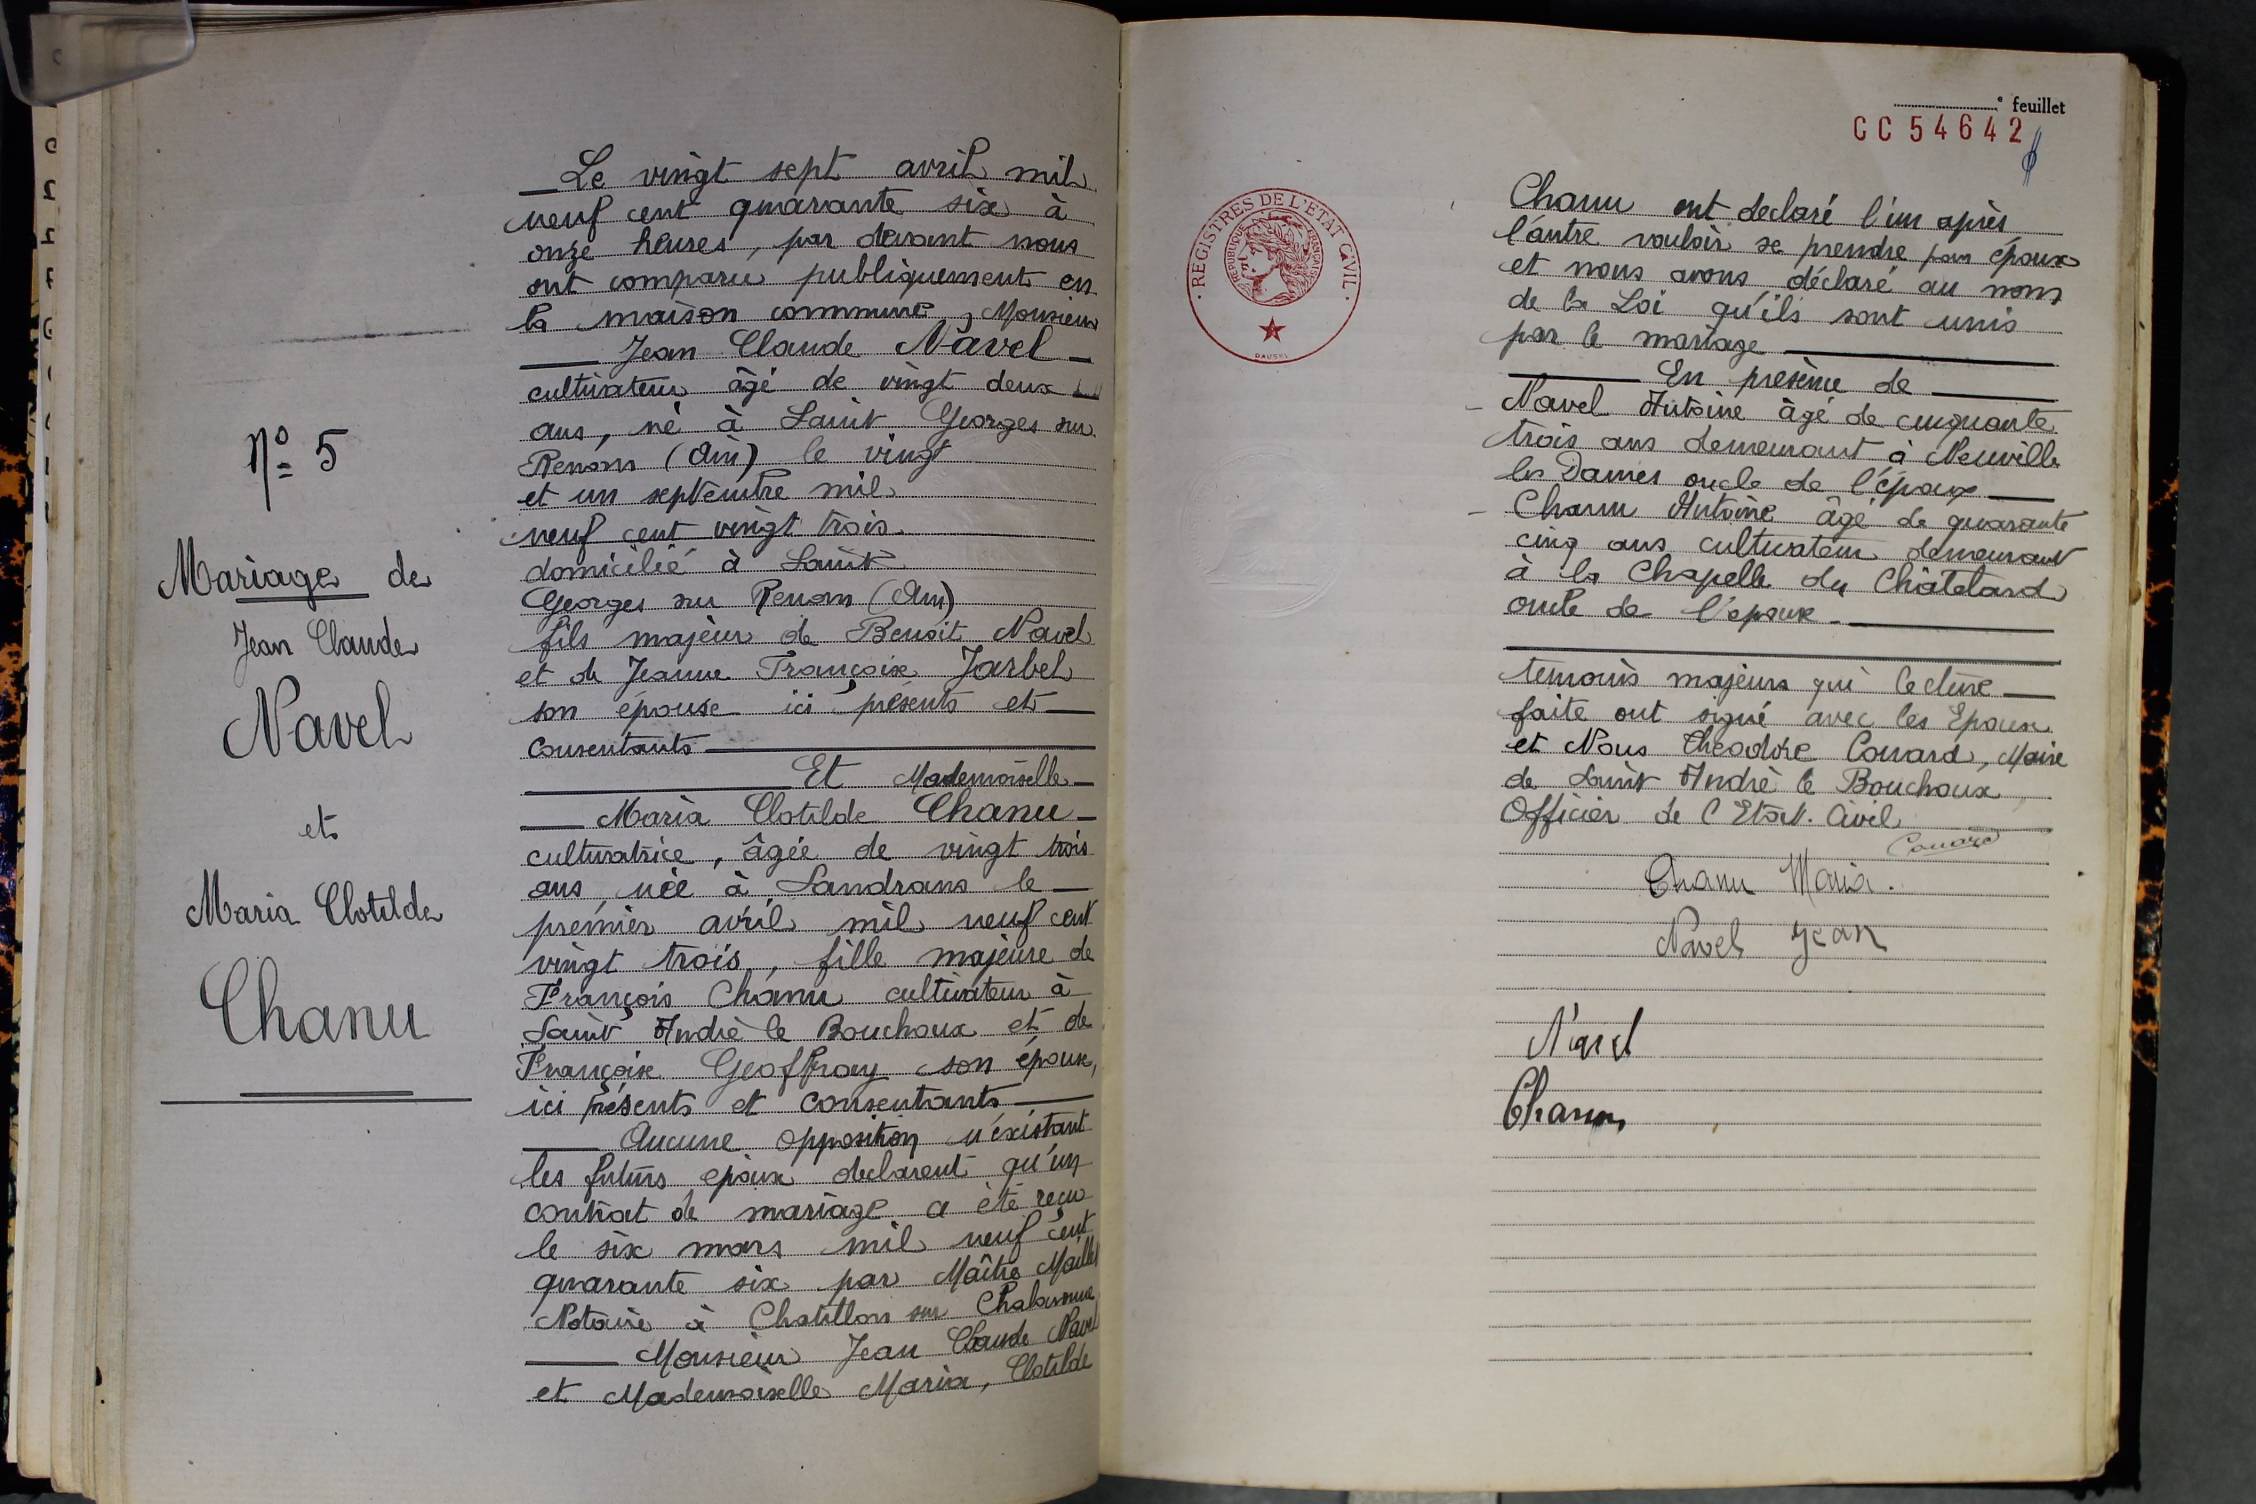 Nº 5
Mariage de
Jean Claude
Navel
et
Maria Clotilde
Chanu
Le vingt sept avril mil
neuf cent quarante six à
onze heures, par devant nous
ont comparu publiquement en
la maison commune, Monsieur
Jean Claude Navel
cultivateur âgé de vingt deux
ans, né à Saint Georges sur
Renom (Ain) le vingt
et un septembre mil
neuf cent vingt trois
domicilié à Saint
Georges sur Renom (Ain)
fils majeur de Benoit Navel
et de Jeanne Françoise Jarbel
son épouse ici présents et
consentants
Et Mademoiselle
Maria Clotilde Chanu
cultivatrice, âgée de vingt trois
ans, née à Sandrans le
premier avril mil neuf cent
vingt trois, fille majeure de
François Chanu cultivateur à
Saint André le Bouchoux et de
Françoise Geoffray son épouse,
ici présents et consentants
Aucune opposition n'éxistant
les futurs epoux declarent qu'un
contrat de mariage a été reçu
le six mars mil neuf cent
quarante six par Maître
Notaire à Chatillon sur Chalaronne
Monsieur Jean Claude Navel
et Mademoiselle Maria, Clotilde
e feuillet
CC 54642
REGISTRES DE L'ETAT CIVIL
REPUBLIQUE FRANÇAISE
Chanu ont declaré l'un après
l'autre vouloir se prendre pour époux
et nous avons déclaré au nom
de la Loi qu'ils sont unis
par le mariage
En présence de
- Navel Antoine âgé de cinquante
trois ans demeurant à Neuville
les Dames oncle de l'époux
- Chanu Antoine âgé de quarante
cinq ans cultivateur demeurant
à la Chapelle du Châtelard
oncle de l'epouse
temoins majeurs qui lecture
faite ont signé avec les Epoux
et Nous Théodore Couard, Maire
de Saint André le Bouchoux
Officier de l'Etat. Civil
Couard
Chanu Maria.
Navel Jean
Navel
Chanu